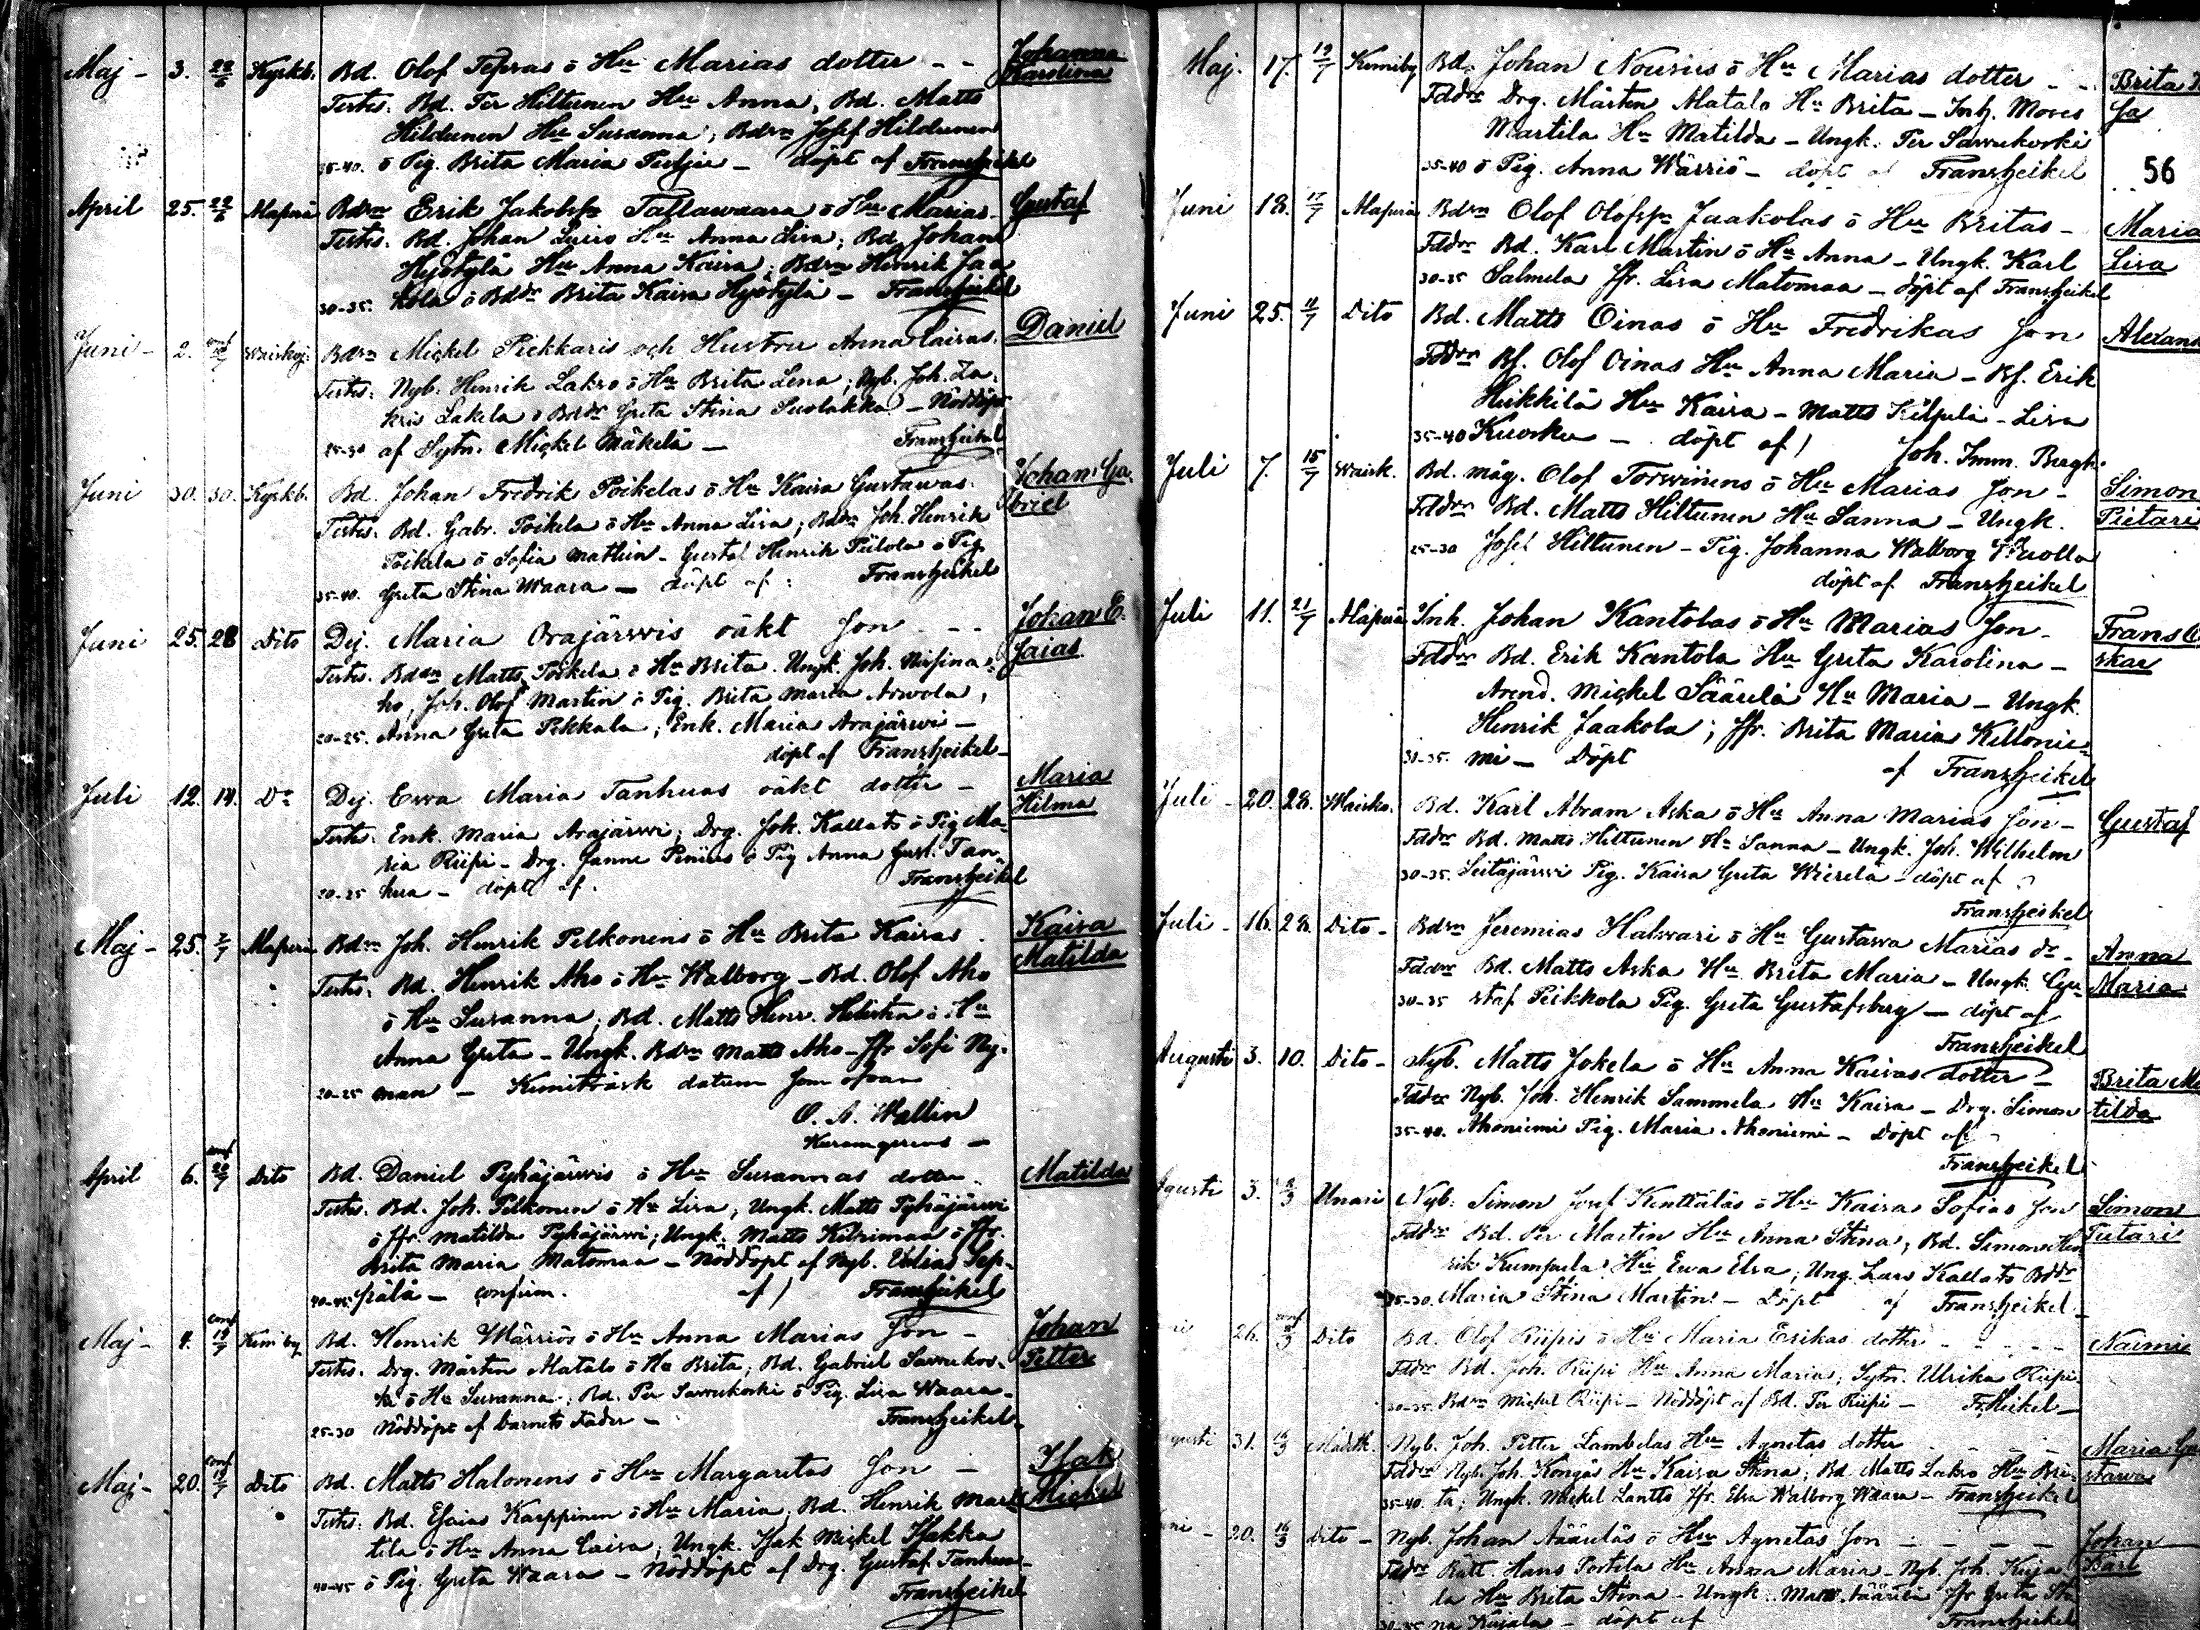 Maj - 3. 22/6 Kyrkb. Bd. Olof Tepsas o Hu Marias dotter - - Johanna
Karolina
Testes. Bd. Per Hiltunen Hu Anna, Bd. Matts
Hildunen Hu Susanna; Bdsn Josef Hildunen
35-40. o Pig. Brita Maria - döpt af FransHeikel
April 25. 22/6 Alaperä Bdsn Erik Jakobss. Tallawaara o Hu Marias Gustaf
Testes. Bd. Johan Luiro Hu Anna Lisa; Bd. Johan
Hyötylä Hu Anna Kaisa; Bdsn Henrik Jaa
30-35. kola o Bddr Brita Kaisa Hyötylä - FransHeikel
Juni - 2. Waiskoj. Bdsn Mickel Pickkaris och Hustru Anna Caisas. Daniel
Testes. Nyb. Henrik Lakso o Hu Brita Lena; Nyb. Joh. Za-
kris Lakela o Bddr Greta Stina Suolakka - Nöddöpt
25-30 af Sytn. Mickel Mäkelä - FransHeikel
Juni 30. 30. Kyrkb. Bd. Johan Fredrik Poikelas o Hu Kaisa Gustawas. Johan Ga-
briel
Testes. Bd. Gabr. Poikela o Hu Anna Lisa; Bdsn Joh. Henrik
Poikela o Sofia Mathlin - Gustaf Henrik Pulola o Pig.
35-40. Greta Stina Waara - döpt af: FransHeikel
Juni 25. 28 Dito Dej. Maria Orajärwis oäkt son - - Johan E-
saias
Testes. Bdsn Matts Poikela o Hu Brita. Ungk. Joh. Nissina-
ho, Joh. Olof Martin o Pig. Brita Maria Arwola,
20-25. Anna Greta Pekkala, Enk. Maria Arajärwi -
döpt af FransHeikel -
Juli 12. 14. Do Dej. Ewa Maria Tanhuas oäkt dotter - Maria
Hilma
Testes. Enk. Maria Arajärwi; Drg. Joh. Kallats o Pig Ma-
ria Riipi - Drg. Janne Peniias o Pig Anna Gust. Tan-
20-25 hua - döpt af. FransHeikel
Maj - 25. 2/7 Alaperä Bdsn Joh. Henrik Pelkonens o Hu Brita Kaisas. Kaisa
Matilda
Testes. Bd. Henrik Aho o Hu Walborg - Bd. Olof Aho
o Hu Susanna, Bd. Matts Henr. Heletka o Hu
Anna Greta - Ungk. Bdsn Matts Aho - Jfr Sofi Ny-
20-25 man - Kemiträsk datum som ofvan
O. A. Wallin
April 6. conf 20/7 Dito Bd. Daniel Pyhäjärwis o Hu Susannas dotter. Matilda
Testes. Bd. Joh. Pelkonen o Hu Lisa, Ungk. Matts Pyhäjärwi
o Jfr. Matilda Pyhäjärwi; Ungk. Matts Kilrimaa o Jfr.
Brita Maria Matomaa - Nöddöpt af Nyb. Sep-
40-45 pälä - confirm. af FransHeikel
Maj - 4. conf 19/7 Kemiby Bd. Henrik Wärriös o Hu Anna Marias son - Johan
Petter
Testes. Drg. Mårten Matalo o Hu Brita; Bd. Gabriel Sawukos-
ki o Hu Susanna, Bd. Per Sawukoski o Pig. Lisa Waara -
25-30 Nöddöpt af barnets fader - FransHeikel
Maj - 20. conf 19/7 Dito Bd. Matts Halonens o Hu Margaretas son - Isak
Mickel
Testes. Bd. Esaias Karppinen o Hu Maria, Bd. Henrik Mart-
tila o Hu Anna Caisa, Ungk. Isak Mickel Isakka
40-45 o Pig. Greta Waara - Nöddöpt af Drg. Gustaf Tanhua -
FransHeikel
Maj. 17. 19/7 Kemiby Bd. Johan Nousus o Hu Marias dotter - - Brita
sa
Fddr Drg. Mårten Matalo Hu Brita - Inh. Moses
Martila Hu Matilda - Ungk. Per Sawukoski
35-40 o Pig. Anna Wärriö - döpt af FransHeikel
56
Juni 18. 17/7 Alaperä Bdsn Olof Olofss. Jaakolas o Hu Britas - Maria
Lisa
Fddr Bd. Karl Martin o Hu Anna - Ungk. Karl
30-35 Salmela Jfr. Lisa Matomaa - döpt af FransHeikel
Juni 25. 11/7 Dito Bd. Matts Oinas o Hu Fredrikas son Alexan
Fddr Bf. Olof Oinas Hu Anna Maria - Bf. Erik
Heikkilä Hu Kaisa - Matts Kilpeli - Lisa
35-40 Kuorku - döpt af Joh. Imm. Bergh.
Juli 7. 15/7 Waisk. Bd. måg. Olof Torwinens o Hu Marias son - Simon
Pietari
Fddr Bd. Matts Hiltunen Hu Sanna - Ungk.
25-30 Josef Hiltunen - Pig. Johanna Walborg Wuollo
döpt af FransHeikel
Juli 11. 21/7 Alaperä Inh. Johan Kantolas o Hu Marias son - Frans O
skar
Fddr Bd. Erik Kantola Hu Greta Karolina -
Arend. Mickel Säärelä Hu Maria - Ungk.
Henrik Jaakola; Jfr. Brita Maria Kellonie-
30-35. mi - Döpt af FransHeikel
Juli - 20. 28. Waisko. Bd. Karl Abram Aska o Hu Anna Marias son - Gustaf
Fddr Bd. Matts Hiltunen Hu Sanna - Ungk. Joh. Wilhelm
30-35. Seitajärwi Pig. Kaisa Greta Wierela - döpt af
FransHeikel
Juli - 16. 28. Dito - Bdsn Jeremias Halwari o Hu Gustawa Marias dr - Anna
Maria
Fddr Bd. Matts Aska Hu Brita Maria - Ungk. Gu-
30-35 staf Peikkola Pig. Greta Gustafsberg - döpt af
FransHeikel
Augusti 3. 10. Dito - Nyb. Matts Jokela o Hu Anna Kaisas dotter - Brita Ma
tilda
Fddr Nyb. Joh. Henrik Sammela Hu Kaisa - Drg. Simon
35-40. Ahoniemi Pig. Maria Ahoniemi - Döpt af
FransHeikel
gusti 3. Unari Nyb. Simon Josef Kenttäläs o Hu Kaisa Sofias son Simon
Pietari
Fddr Bd. Per Martin Hu Anna Stina, Bd. Simon Hen
rik Kumpula Hu Ewa Elsa; Ung. Lars Kallats Bddr
25-30. Maria Stina Martin - Döpt af FransHeikel.
26. Dito Bd. Olof Riipis o Hu Maria Erikas dotter - - - Naimi
Fddr Bd. Joh. Riipi Hu Anna Maria; Sytn. Ulrika Riipi.
Bdsn Mickel Riipi - Nöddöpt af Bd. Per Riipi - Fr. Heikel -
gusti 31. Nyb. Joh. Petter Lambelas Hu Agnetas dotter - - - Maria Gu
stawa
Fddr Nyb. Joh. Kongäs Hu Kaisa Stina; Bd. Matts Lakso Hu Bri-
35-40. ta; Ungk. Mickel Lantto Jfr. Elsa Walborg Waara - FransHeikel
20. Dito - Nyb. Johan Ääreläs o Hu Agnetas son - - - Johan
Karl
Fddr Rätt. Hans Portila Hu Anna Maria - Nyb. Joh. Kuja
la Hu Brita Stina - Ungk. Matts Äärelä Jfr Greta Sti
na Kujala - döpt af FransHeikel